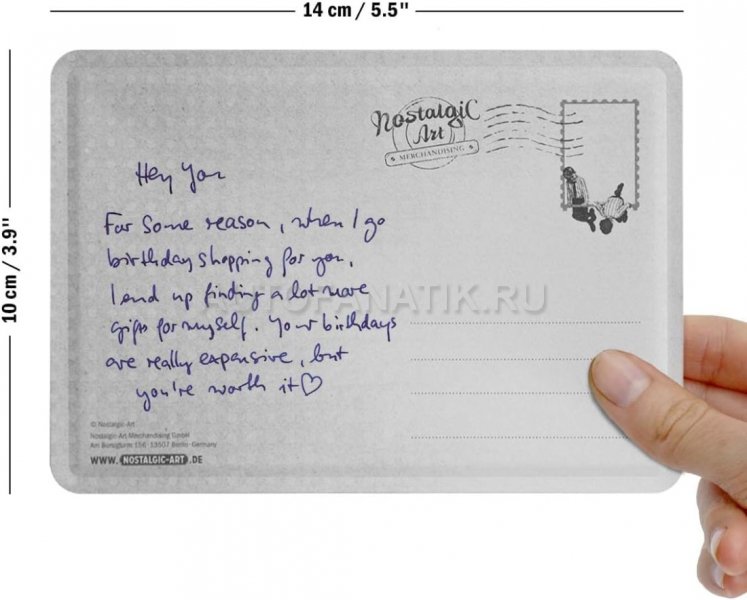 14 cm / 5.5"
10 cm / 3.9"
Nostalgic
Art
MERCHANDISING
Hey You
For some reason, when I go
birthday shopping for you,
I end up finding a lot more
gifts for myself. Your birthdays
are really expensive, but
you're worth it♡
AUTOFANATIK.RU
© Nostalgic-Art
Nostalgic-Art Merchandising GmbH
Am Borsigturm 156 · 13507 Berlin · Germany
WWW. NOSTALGIC-ART .DE